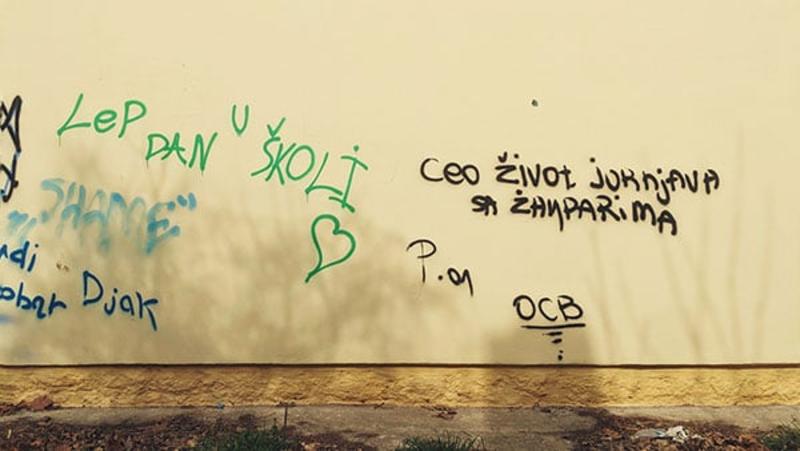 LeP DAN U ŠKOLI
"SHAME"
Djak
Ceo život juRnjAVA
SA žAnDARiMA
OCB